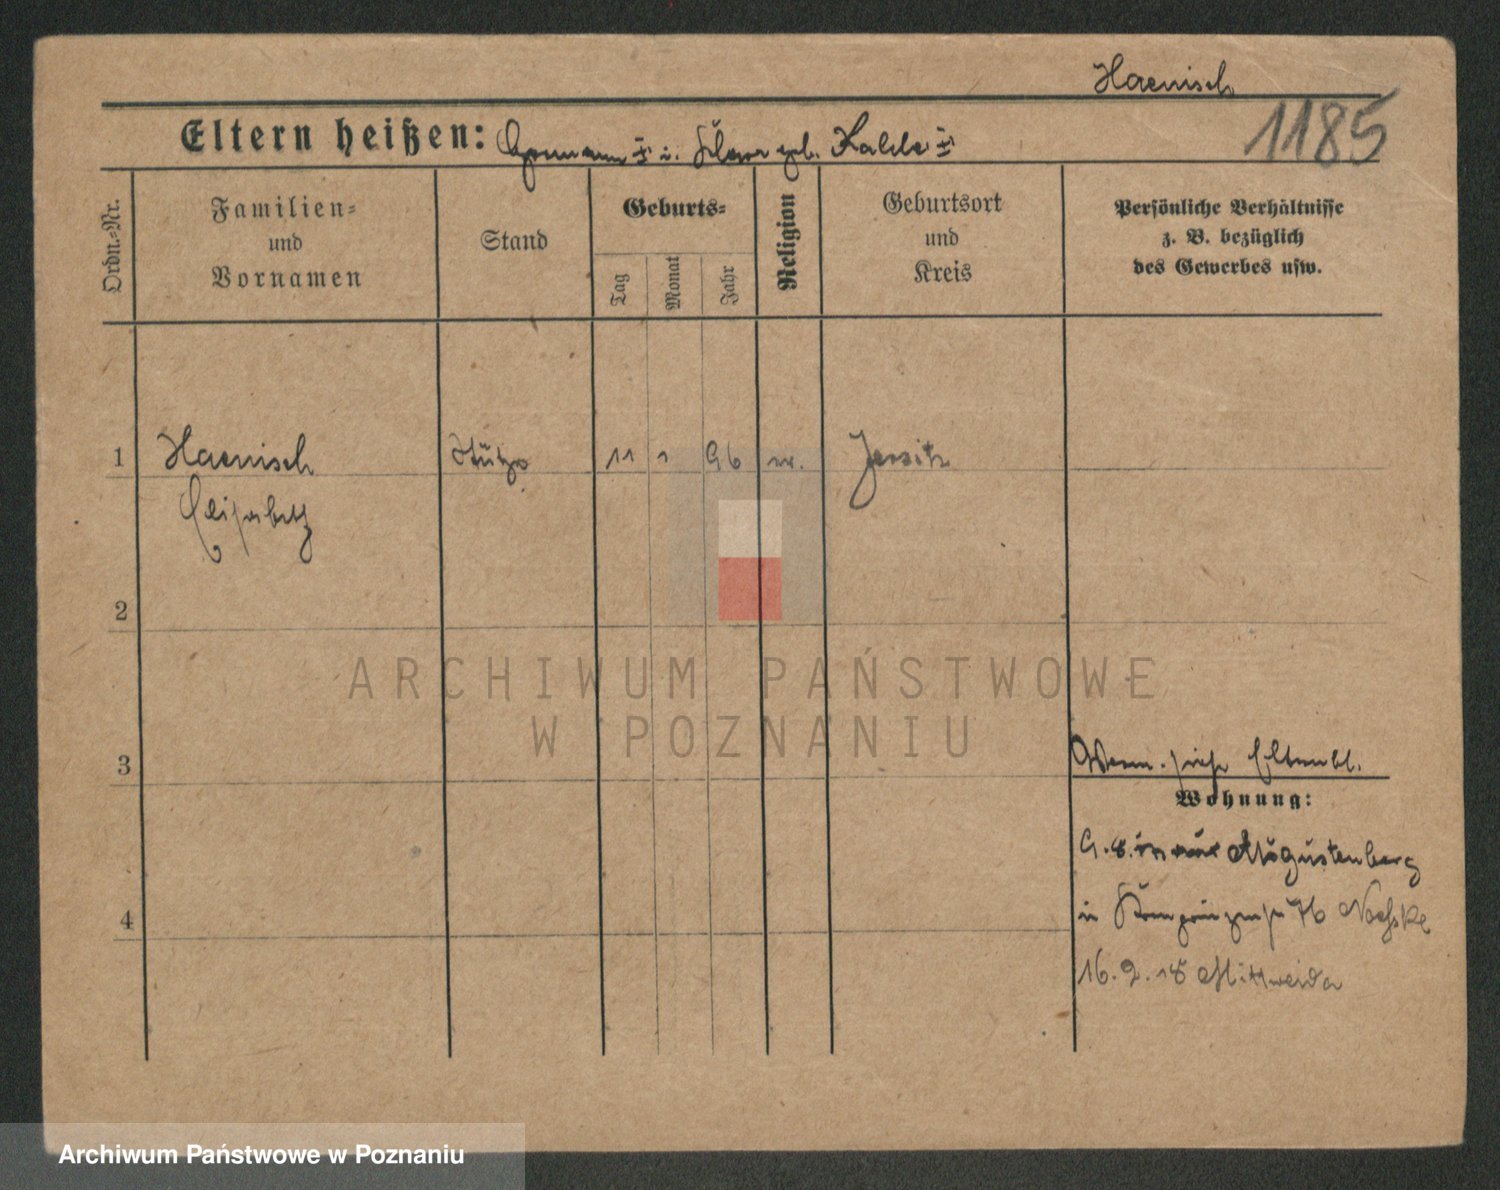 Haenisch
1185
Eltern heißen: Hermann ‡ u. Klara geb. Kalde ‡
Ordn.-Nr.
Familien-
und
Vornamen
Stand
Geburts-
Tag
Monat
Jahr
Religion
Geburtsort
und
Kreis
Persönliche Verhältnisse
z. B. bezüglich
des Gewerbes usw.
1 Haenisch Stütze 11 1 96 Jersitz
Elisabeth
2
ARCHIWUM PAŃSTWOWE
W POZNANIU
3
Verm. siehe Elternbl.
Wohnung:
Augustenberg
in Kronprinzenstr 76
4
16.2.18 Mittweida
Archiwum Państwowe w Poznaniu